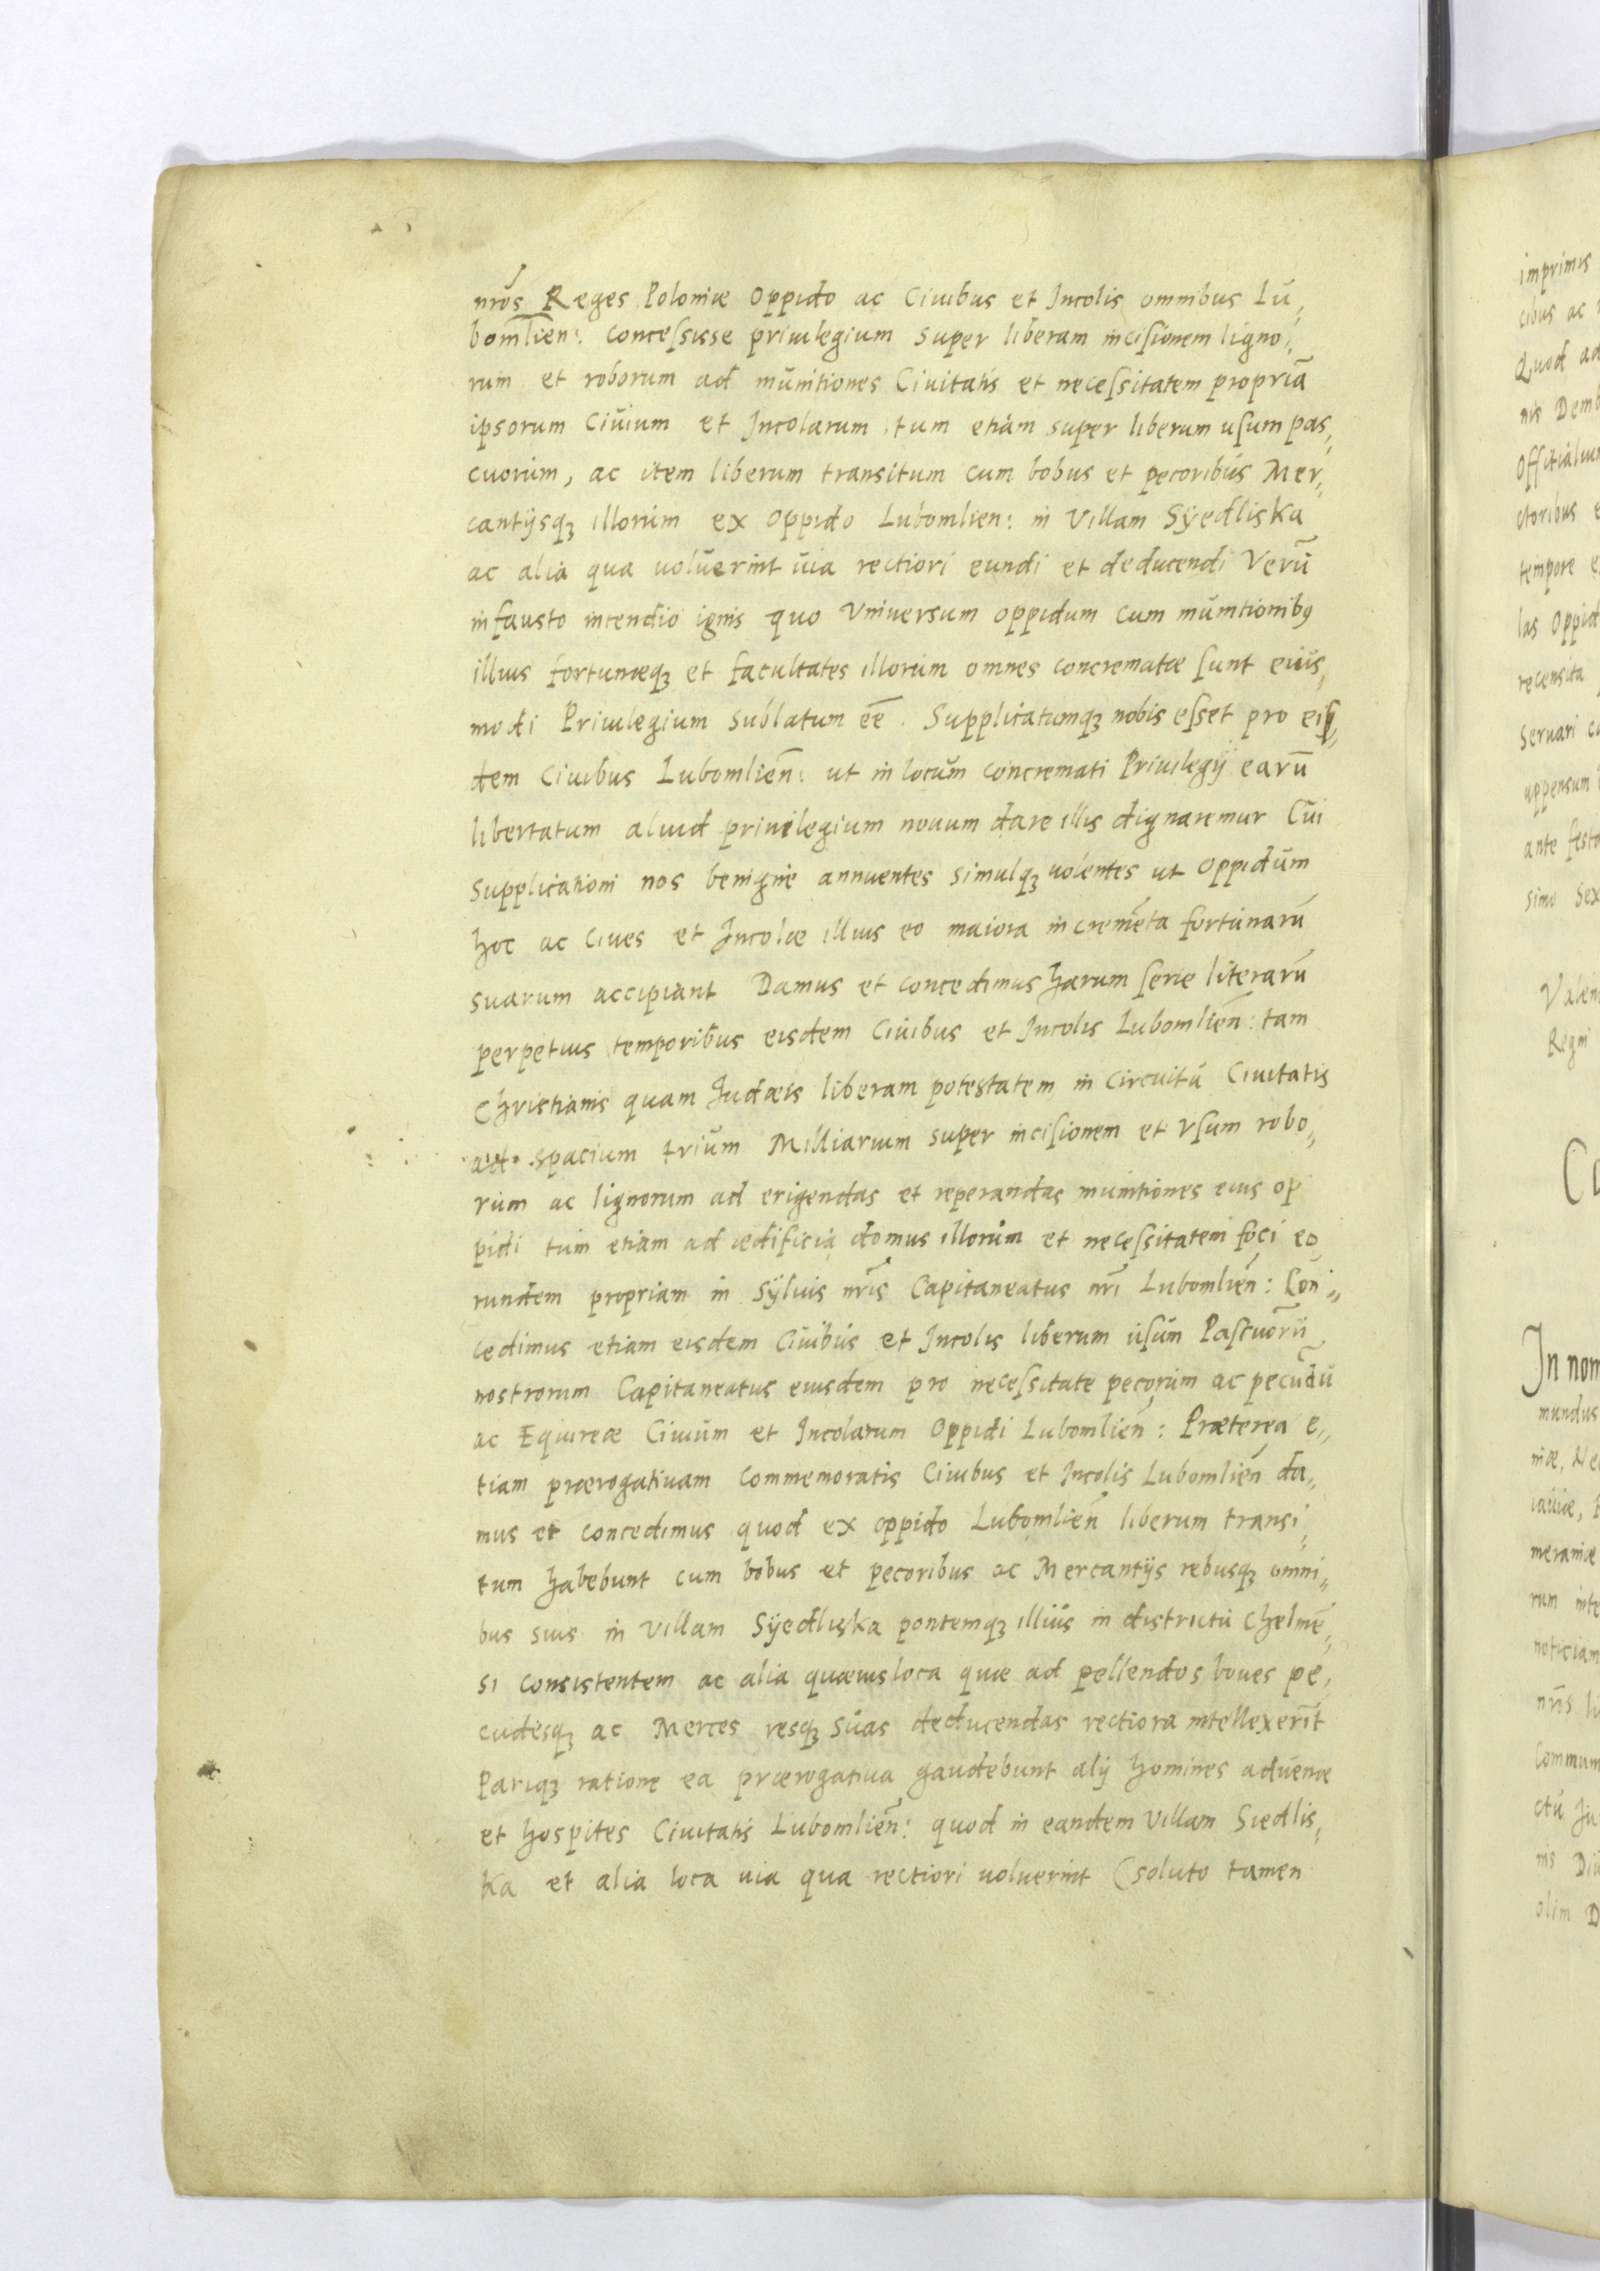 nr̃os Reges Poloniæ Oppido ac Ciuibus et Incolis omnibus Lu,
bomlien: concessisse priuilegium super liberam incisionem ligno,
rum et roborum ad munitiones Ciuitatis et necessitatem propriã
ipsorum Ciuium et Incolarum, tum etiam super liberum usum pas,
cuorum, ac item liberum transitum cum bobus et pecoribus Mer,
cantijsqȝ illorum ex oppido Lubomlien: in Villam Sÿedliska
ac alia qua uoluerint uia rectiori eundi et deducendi Verũ
infausto incendio ignis quo Vniuersum oppidum cum munitionibꝰ
illius fortunæqȝ et facultates illorum omnes concrematæ sunt eius,
modi Priuilegium sublatum eẽ. Supplicatumqȝ nobis esset pro eis,
dem Ciuibus Lubomlieñ: ut in locum concremati Priuilegij earũ
libertatum aliud priuilegium nouum dare illis dignaremur Cui
supplicationi nos benigne annuentes simulqȝ uolentes ut oppidum
hoc ac Ciues et Incolæ illius eo maiora incremẽta fortunarũ
suarum accipiant Damus et concedimus harum serie literarũ
perpetuis temporibus eisdem Ciuibus et Incolis Lubomlieñ: tam
Christianis quam Judæis liberam potestatem in circuitu Ciuitatis
ad spacium trium Milliarium super incisionem et Vsum robo,
rum ac lignorum ad erigendas et reperandas munitiones eius op
pidi tum etiam ad ædificia domus illorum et necessitatem foci eo
rundem propriam in Sÿluis nr̃is Capitaneatus nr̃i Lubomlieñ: Con,,
cedimus etiam eisdem Ciuibus et Incolis liberum usum Pascuorũ
nostrorum Capitaneatus eiusdem pro necessitate pecorum ac pecudũ
ac Equireæ Ciuium et Incolarum Oppidi Lubomlieñ: Præterea e,,
tiam prærogatiuam commemoratis Ciuibus et Incolis Lubomlieñ da,
mus et concedimus quod ex oppido Lubomlieñ liberum transi,
tum habebunt cum bobus et pecoribus ac Mercantijs rebusqȝ omni,
bus suis in Villam Sÿedliska pontemqȝ illius in districtu Chelmẽ,
si consistentem ac alia quæuis loca quæ ad pellendos boues pe,
cudesqȝ ac Merces resqȝ suas deducendas rectiora intellexerĩt
Pariqȝ ratione ea prærogatiua gaudebunt alij homines aduenæ
et hospites Ciuitatis Lubomlieñ: quod in eandem Villam Siedlis,
ka et alia loca uia qua rectiori uoluerint (soluto tamen
imprimis
cibus ac
Quod ad
nis Demb
ctoribus e
tempore e
las Oppid
recensita
Seruari cu
appensum
ante festa
simo Sex
Regni
In nom
mundus
niæ, Nec
meraniæ
rum inte
noticiam
nr̃is li
Commun
ctũ Ju
olim D